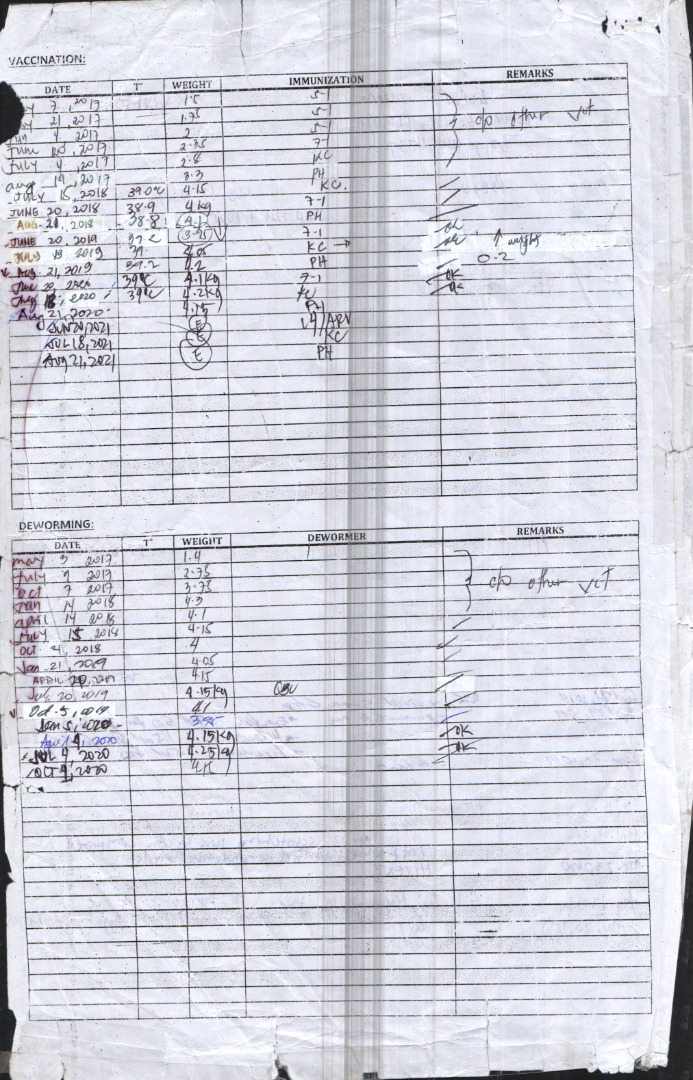 VACCINATION:
DATE T° WEIGHT IMMUNIZATION REMARKS
7, 2017 1.5 5-1
21, 2017 1.75 5-1 c/o other vet
4, 2017 2 5-1
June 20, 2017 2.35 7-1
July 4, 2017 2.8 KC
aug 19, 2017 3.3 PH
JULY 15, 2018 39.0°C 4.15 KC.
JUNE 20, 2018 38.9 4 kg 7-1
AUG. 21, 2018 38.8 PH
JUNE 20, 2019 7-1
July 18 2019 39. 4.05 KC → ↑ weight
Aug. 21, 2019 39.2 4.2 PH 0.2
39°C 4.1kg 7-1 OK
2020 39°C 4.2kg KC OK
Aug 21, 2020 4.15 PH
JUN 20, 2021 E
JUL 18, 2021 E KC
AUG 21, 2021 E PH
DEWORMING:
DATE T° WEIGHT DEWORMER REMARKS
may 3 2017 1.4
July 7 2017 2.75
Oct 7 2017 3.75 c/o other vet
Jan 14 2018 4.3
april 14 2018 4.1
July 15 2018 4.15
OCT 21, 2018 4
Jan 21, 2019 4.05
APRIL 20, 2019 4.15
July 20 2019 4.15kg
Oct. 5, 2019 4.1
Jan 5, 2020 3.95
April 4, 2020 4.15kg OK
JUL 4, 2020 4.25kg OK
OCT 4, 2020